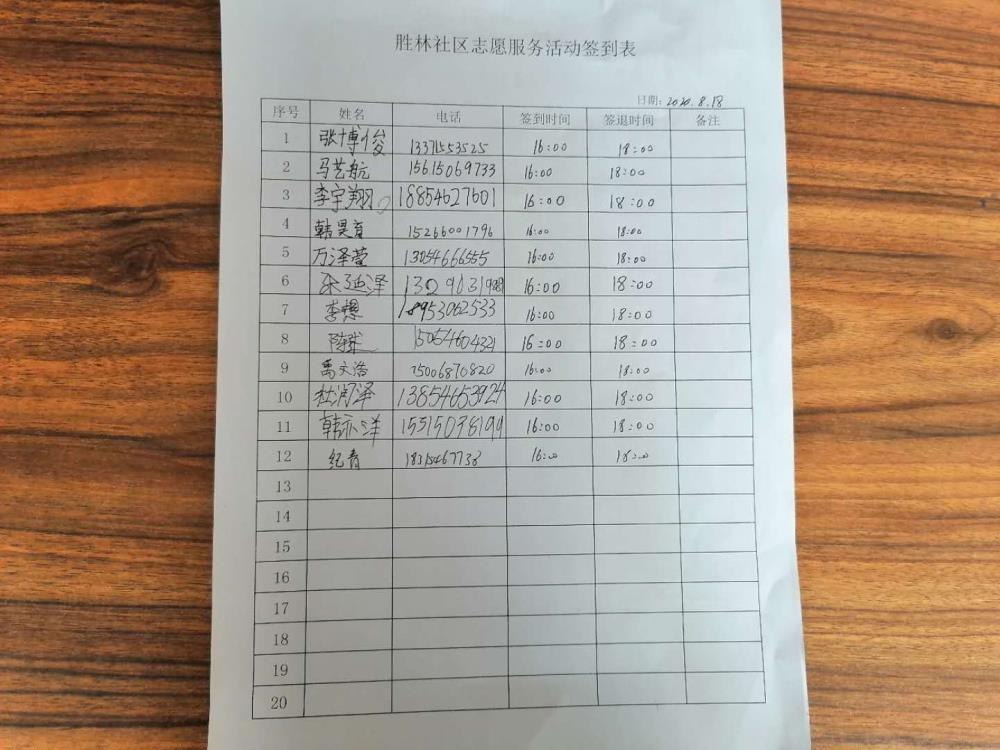 胜林社区志愿服务活动签到表
日期: 2020.8.18
序号 姓名 电话 签到时间 签退时间 备注
1 张博俊 13371553525 16:00 18:00
2 马艺航 15615069733 16:00 18:00
3 李宇翔 18854627601 16:00 18:00
4 韩昊育 15266001796 16:00 18:00
5 万泽萱 13054666555 16:00 18:00
6 16:00 18:00
7 18953062533 16:00 18:00
8 15054604321 16:00 18:00
9 禹文浩 15006870820 16:00 18:00
10 杜润泽 13854653924 16:00 18:00
11 韩亦洋 16:00 18:00
12 纪青 18315467738 16:00 18:00
13
14
15
16
17
18
19
20